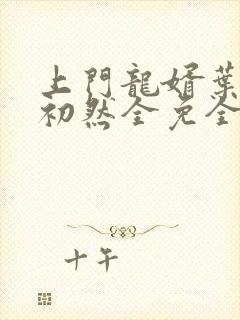 上門龍婿葉
初然全免全
十午